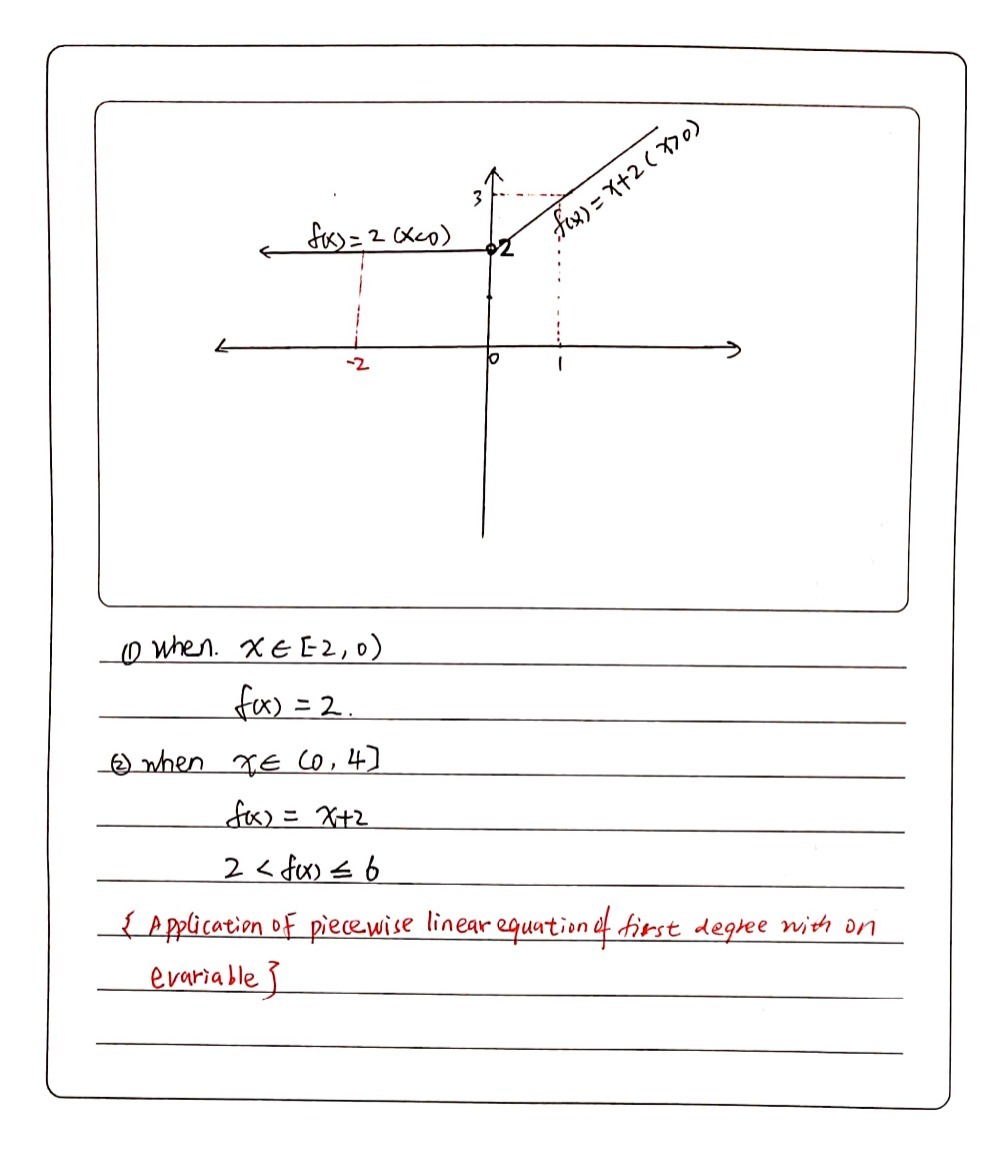 f(x) = x+2 (x>0)
3
f(x) = 2 (x<0)
2
-2
0
1
① when. x ∈ [-2, 0)
f(x) = 2.
② when x ∈ (0, 4]
f(x) = x+2
2 < f(x) ≤ 6
{ Application of piecewise linear equation of first degree with on
evariable }